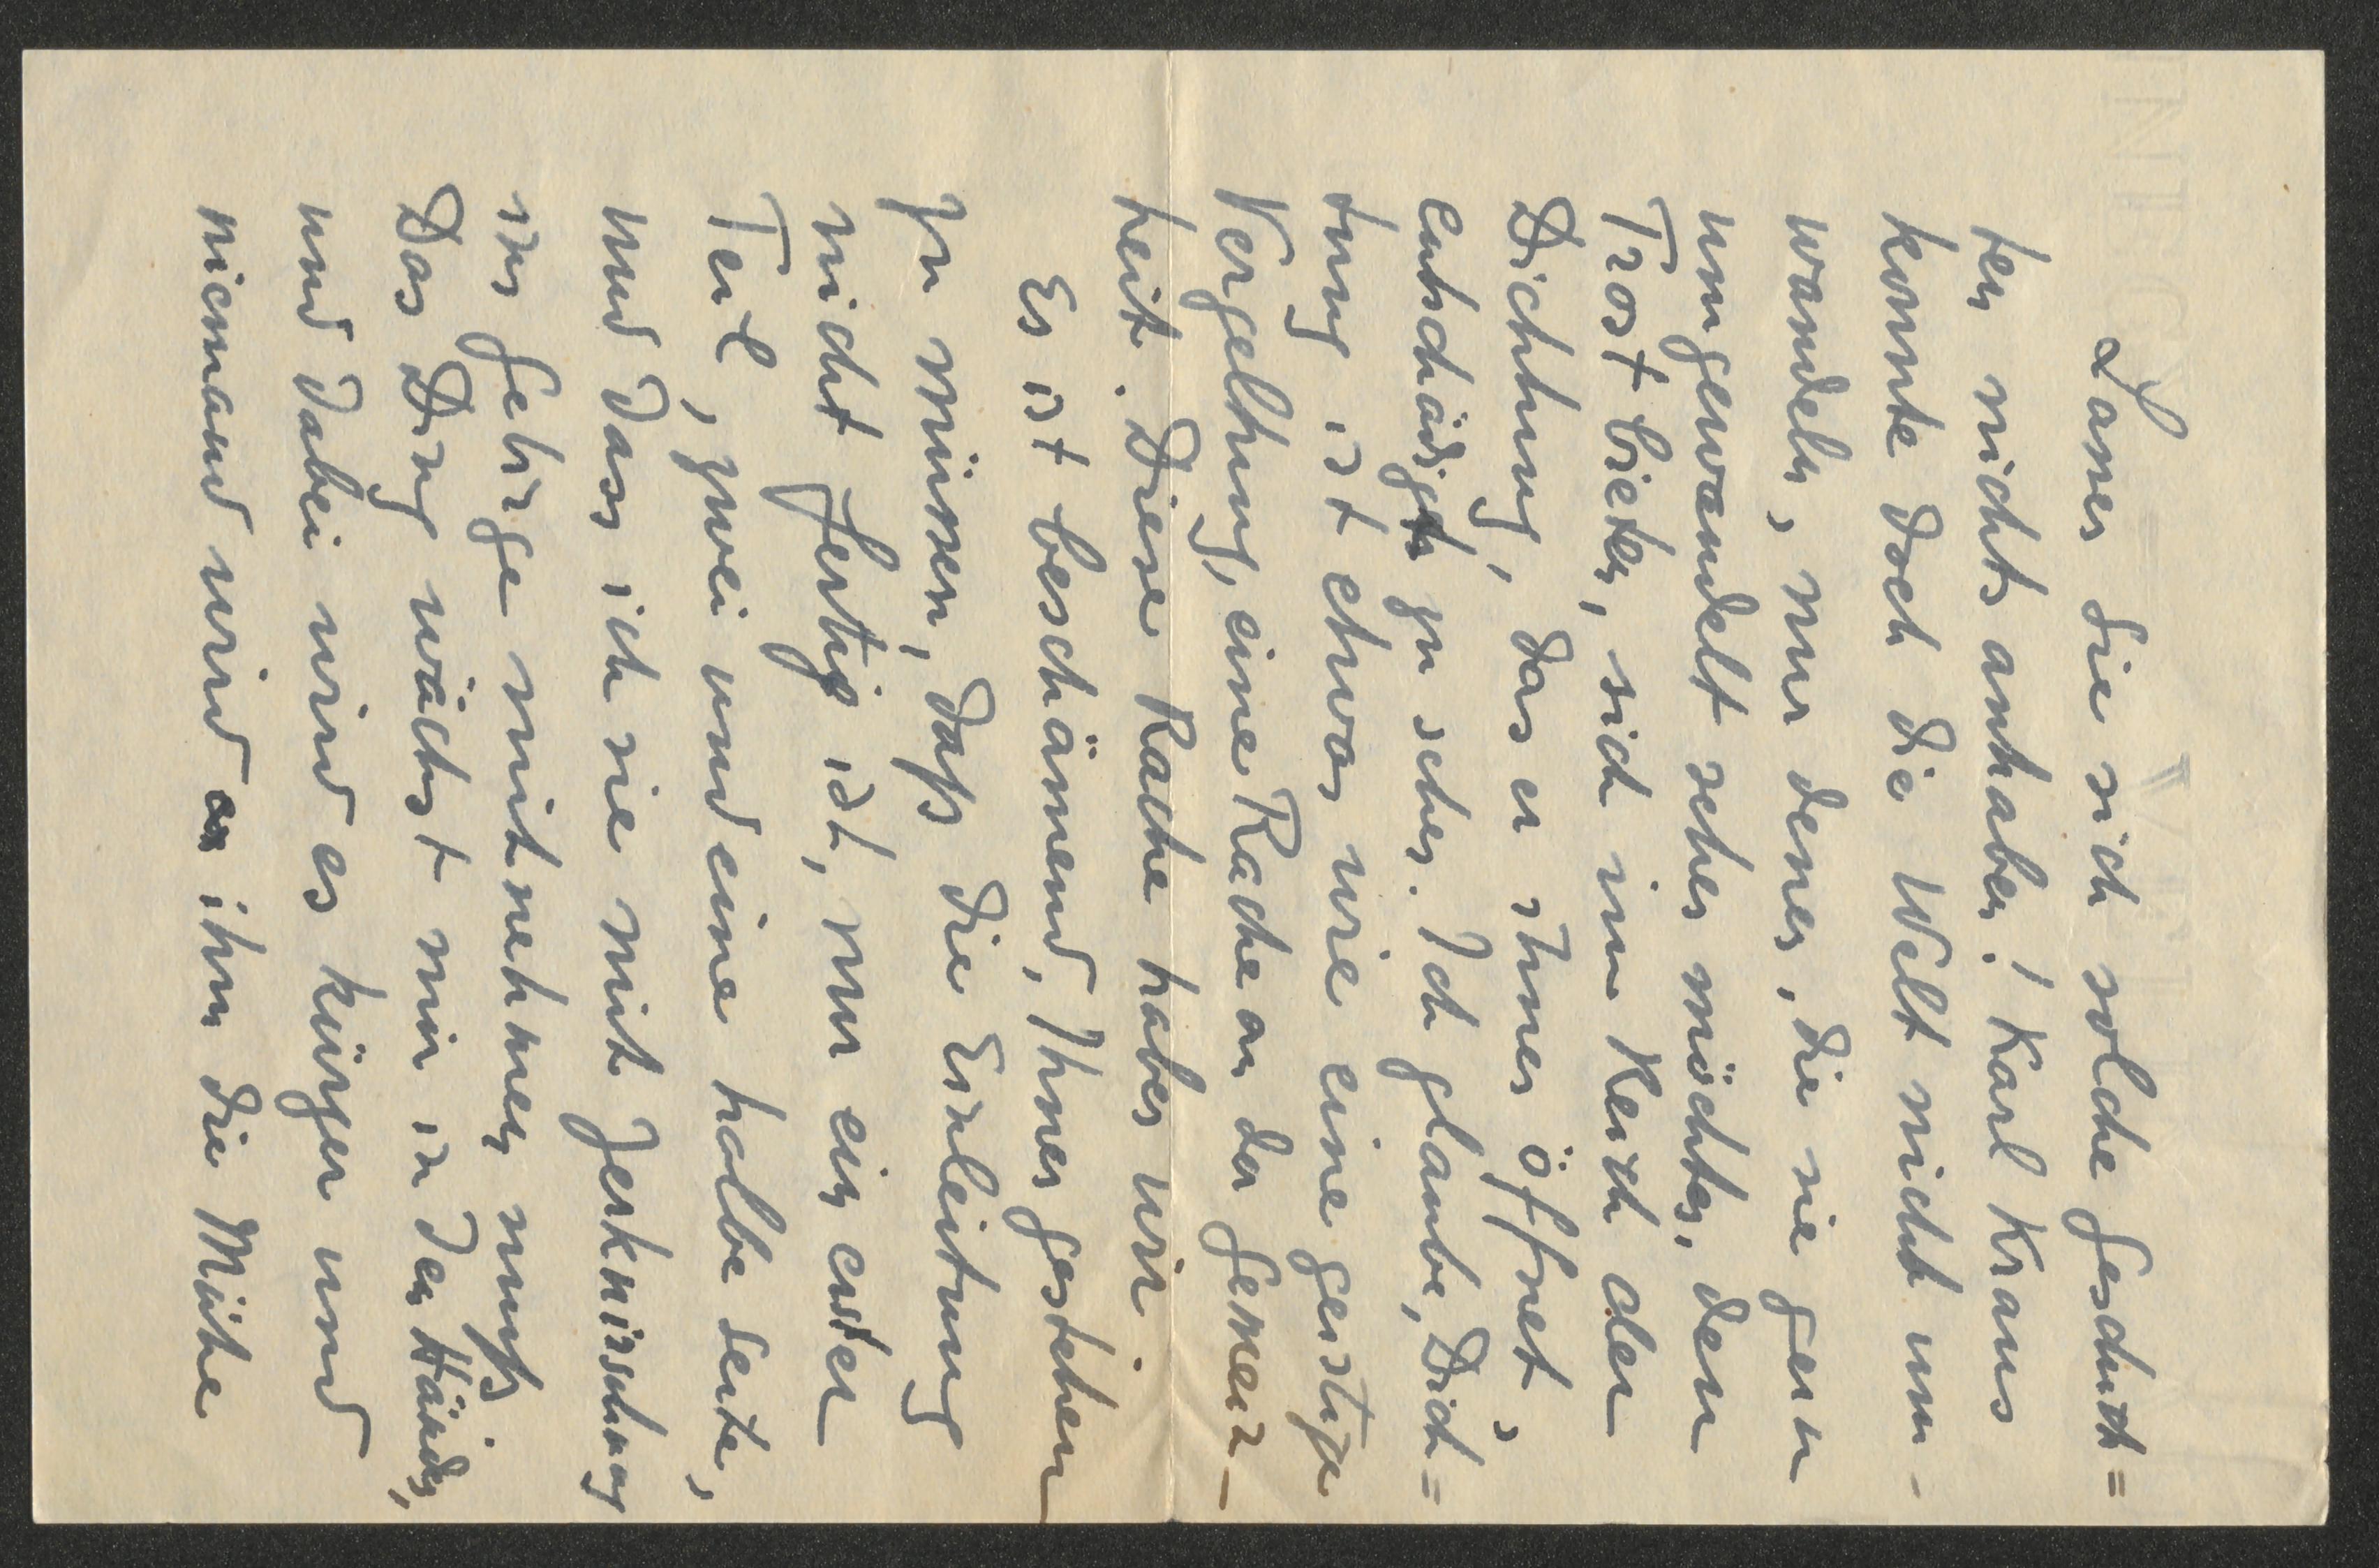 Lassen Sie sich solche Geschich=
ten nichts anhaben! Karl Kraus
konnte doch die Welt nicht um-
wandeln, nur denen, die sie gern
umgewandelt sehen möchten, den
Trost bieten, sich im Reich der
Dichtung, das er ihnen öffnet,
entschädigt zu sehen. Ich glaube, Dich=
tung ist etwas wie eine geistige
Vergeltung, eine Rache an der Gemein-
heit. Diese Rache haben wir.
Es ist beschämend, Ihnen gestehen
zu müssen, dass die Einleitung
nicht fertig ist, nur ein erster
Teil, zwei und eine halbe Seite,
und dass ich sie mit Zerknirschung
ins Gebirge mitnehmen muß.
Das Ding wächst mir in den Händen,
und dabei wird es kürzer und
niemand wird an ihm die Mühe